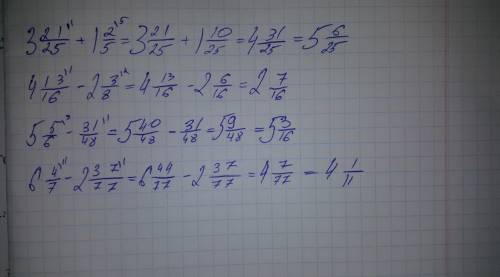 3 21/25 ¹¹ + 1 2/5 ¹⁵ = 3 21/25 + 1 10/25 = 4 31/25 = 5 6/25
4 13/16 ¹¹ - 2 3/8 ¹² = 4 13/16 - 2 6/16 = 2 7/16
5 5/6 - 31/48 ¹¹ = 5 40/48 - 31/48 = 5 9/48 = 5 3/16
6 4/7 ¹¹ - 2 37/77 ¹¹ = 6 44/77 - 2 37/77 = 4 7/77 = 4 1/11